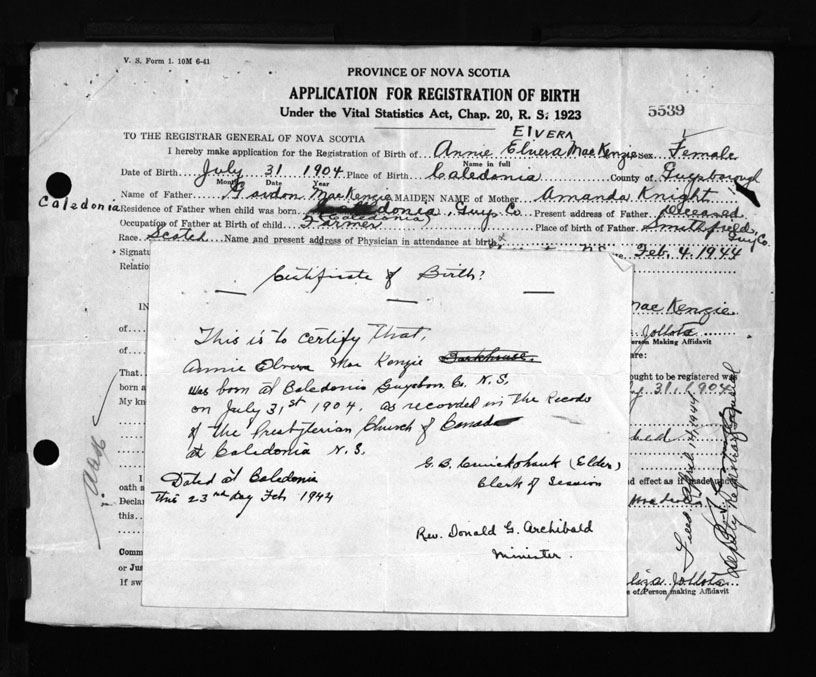 V. S. Form 1. 10M 6-41
PROVINCE OF NOVA SCOTIA
APPLICATION FOR REGISTRATION OF BIRTH
Under the Vital Statistics Act, Chap. 20, R. S. 1923
5539
ELVERA
TO THE REGISTRAR GENERAL OF NOVA SCOTIA
I hereby make application for the Registration of Birth of Annie Elvera MacKenzie Sex Female
Name in full
Date of Birth July 31 1904 Place of Birth Caledonia County of Guysborough
Month Date Year
Name of Father Gordon MacKenzie MAIDEN NAME of Mother Amanda Knight
Caledonia
Residence of Father when child was born Guy. Co. Present address of Father Deceased
Caledonia
Occupation of Father at Birth of child Farmer Place of birth of Father Smithfield, Guy Co.
Race Scotch Name and present address of Physician in attendance at birth
Signatu Feb. 4. 1944
Relatio
Certificate of Birth?
This is to certify that,
Annie Elvera Mac Kenzie
was born at Caledonia Guysboro. Co. N. S,
on July 31st 1904, as recorded in the Records
of the Presbyterian Church of Canada
at Caledonia N. S.
G. B. (Elder)
Clerk of Session
Dated at Caledonia
this 23rd day Feb 1944
Rev. Donald G. Archibald
Minister.
IN
of
of
That
born a
My kn
I
oath a
Declar
this
Comm
or Jus
If sw
MacKenzie
erson Making Affidavit
are:
ought to be registered wa
31, 1904
d effect as if made under
Filed April 14, 1944
Deputy Registrar General
e of Person making Affidavit